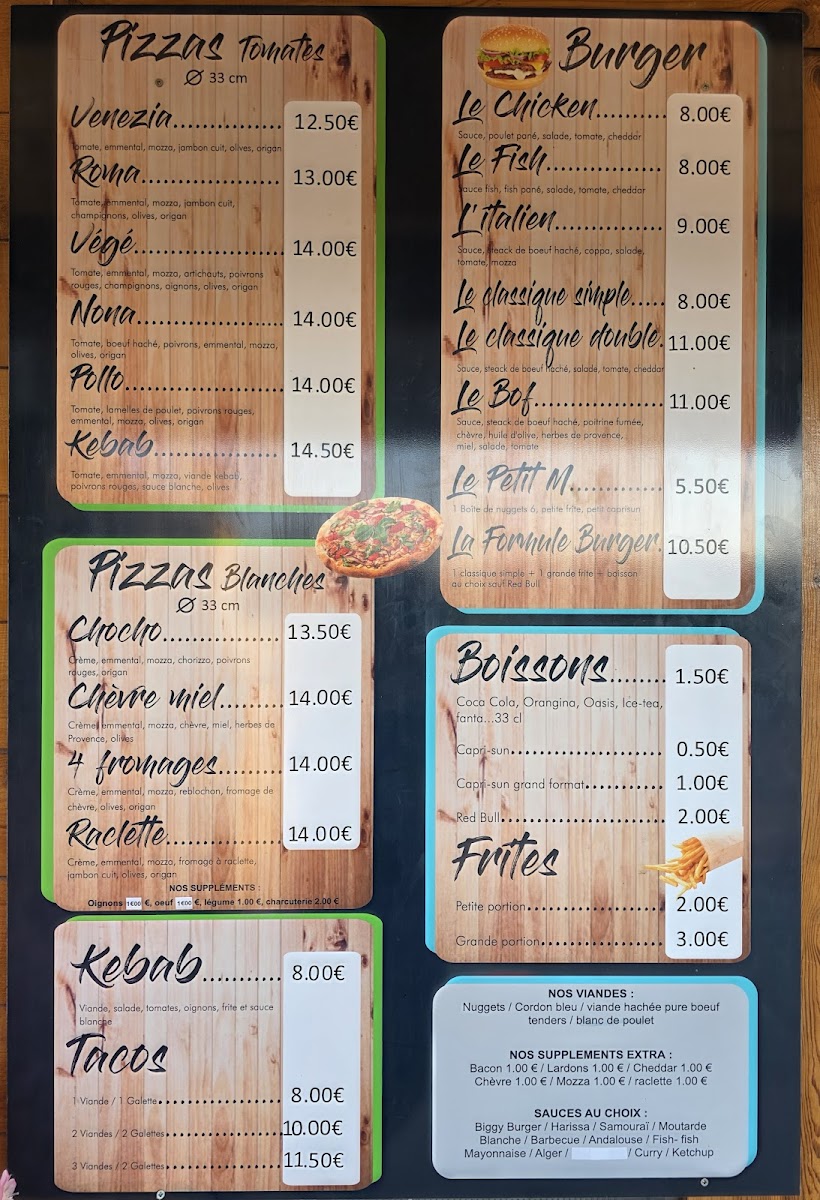 Pizzas Tomates
Ø 33 cm
Venezia.................. 12.50€
Tomate, emmental, mozza, jambon cuit, olives, origan
Roma....................... 13.00€
Tomate, emmental, mozza, jambon cuit,
champignons, olives, origan
Végé........................ 14.00€
Tomate, emmental, mozza, artichauts, poivrons
rouges, champignons, oignons, olives, origan
Nona........................ 14.00€
Tomate, boeuf haché, poivrons, emmental, mozza,
olives, origan
Pollo......................... 14.00€
Tomate, lamelles de poulet, poivrons rouges,
emmental, mozza, olives, origan
Kebab..................... 14.50€
Tomate, emmental, mozza, viande kebab,
poivrons rouges, sauce blanche, olives
Pizzas Blanches
Ø 33 cm
Chocho.................... 13.50€
Crème, emmental, mozza, chorizzo, poivrons
rouges, origan
Chèvre miel.......... 14.00€
Crème, emmental, mozza, chèvre, miel, herbes de
Provence, olives
4 fromages.......... 14.00€
Crème, emmental, mozza, reblochon, fromage de
chèvre, olives, origan
Raclette................... 14.00€
Crème, emmental, mozza, fromage à raclette,
jambon cuit, olives, origan
NOS SUPPLÉMENTS :
Oignons 1€00 €, oeuf 1€00 €, légume 1.00 €, charcuterie 2.00 €
Kebab............. 8.00€
Viande, salade, tomates, oignons, frite et sauce
blanche
Tacos
1 Viande / 1 Galette.................... 8.00€
2 Viandes / 2 Galettes................... 10.00€
3 Viandes / 2 Galettes................... 11.50€
Burger
Le Chicken........... 8.00€
Sauce, poulet pané, salade, tomate, cheddar
Le Fish................... 8.00€
Sauce fish, fish pané, salade, tomate, cheddar
L'italien................. 9.00€
Sauce, steack de boeuf haché, coppa, salade,
tomate, mozza
Le classique simple..... 8.00€
Le classique double. 11.00€
Sauce, steack de boeuf haché, salade, tomate, cheddar
Le Bof.................... 11.00€
Sauce, steack de boeuf haché, poitrine fumée,
chèvre, huile d'olive, herbes de provence,
miel, salade, tomate
Le Petit M............... 5.50€
1 Boîte de nuggets 6, petite frite, petit caprisun
La Formule Burger. 10.50€
1 classique simple + 1 grande frite + boisson
au choix sauf Red Bull
Boissons........ 1.50€
Coca Cola, Orangina, Oasis, Ice-tea,
fanta...33 cl
Capri-sun........................... 0.50€
Capri-sun grand format.............. 1.00€
Red Bull............................ 2.00€
Frites
Petite portion...................... 2.00€
Grande portion.................... 3.00€
NOS VIANDES :
Nuggets / Cordon bleu / viande hachée pure boeuf
tenders / blanc de poulet
NOS SUPPLEMENTS EXTRA :
Bacon 1.00 € / Lardons 1.00 € / Cheddar 1.00 €
Chèvre 1.00 € / Mozza 1.00 € / raclette 1.00 €
SAUCES AU CHOIX :
Biggy Burger / Harissa / Samouraï / Moutarde
Blanche / Barbecue / Andalouse / Fish- fish
Mayonnaise / Alger / / Curry / Ketchup